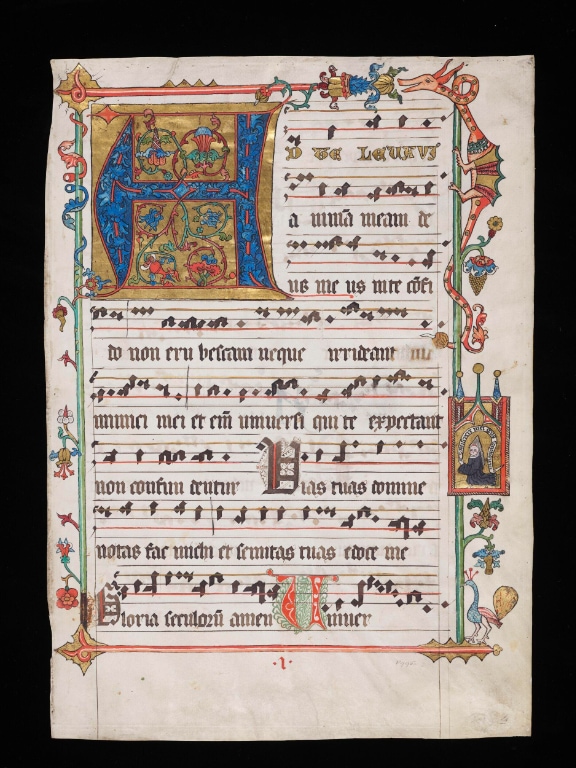 AD TE LEVAVI
a nimā meam de
us me us in te cōfi
do non eru bescam neque irrideant me
inimici mei et eni universi qui te expectant
non confun dentur Vias tuas domine
notas fac michi et semitas tuas edoce me
Gloria seculorū amen Univer
·1·